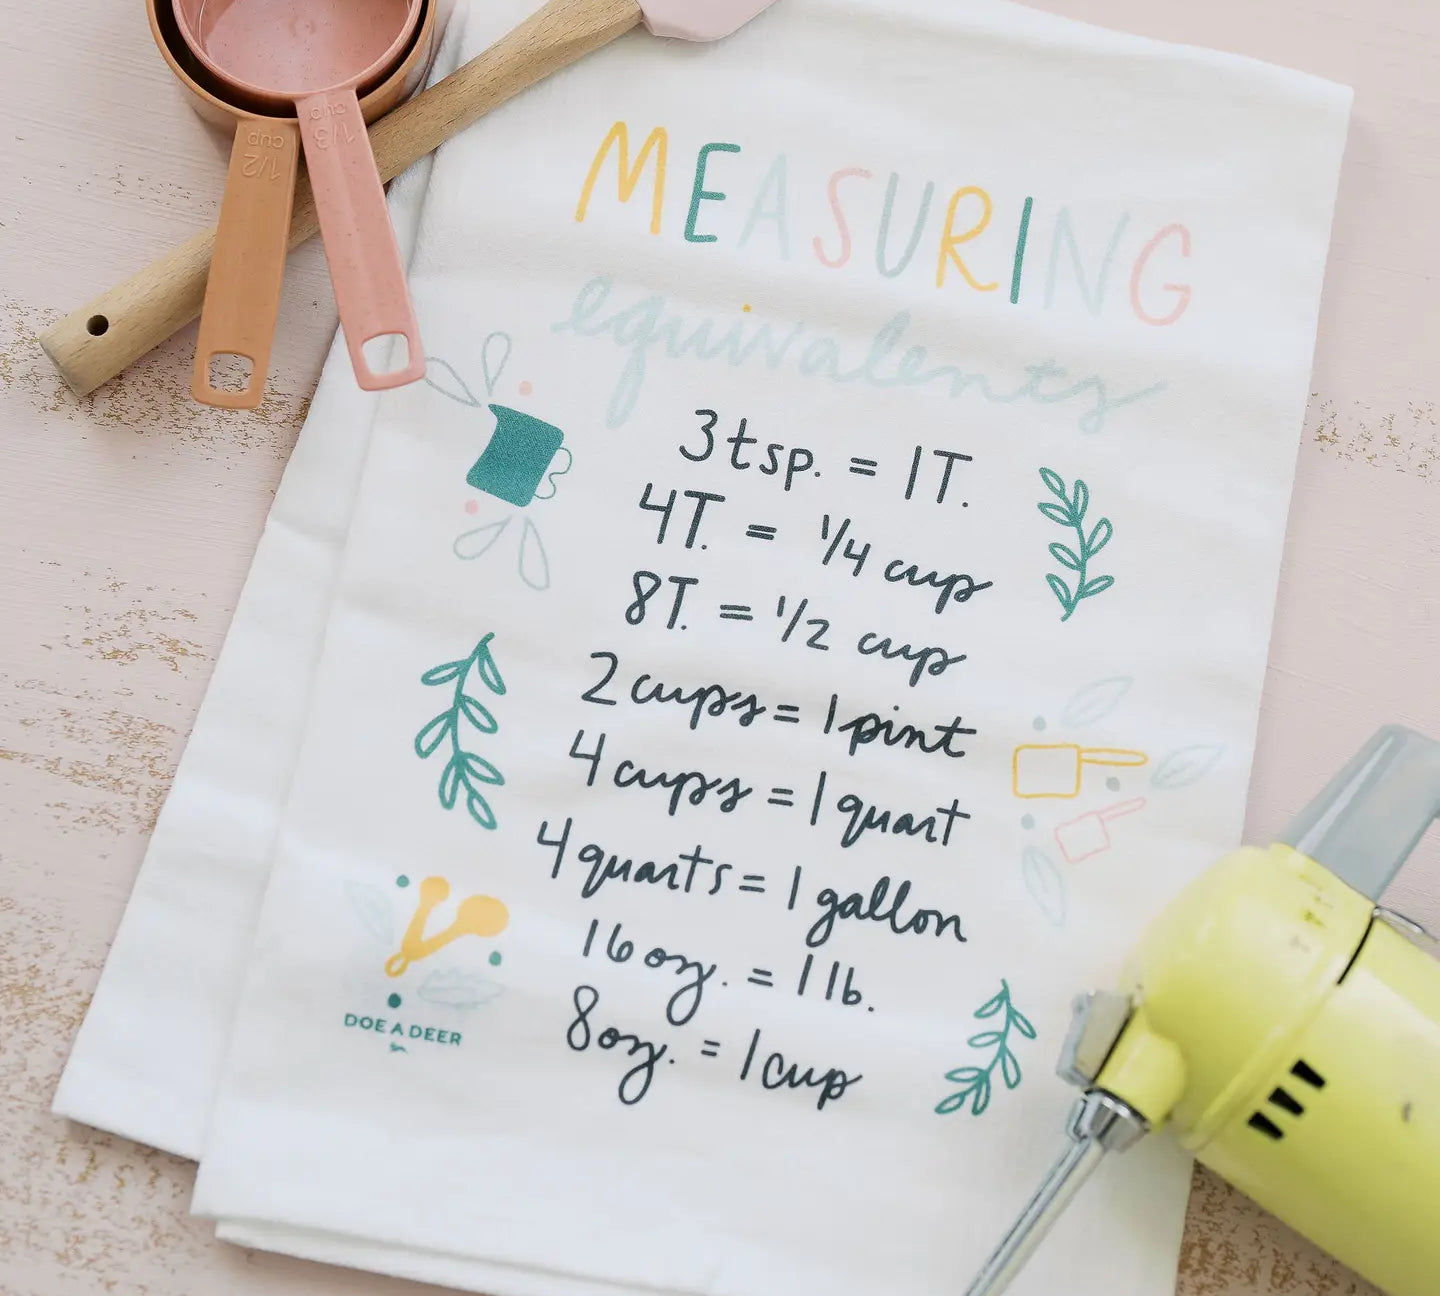 1/2
cup
1/3
cup
MEASURING
equivalents
3 tsp. = 1T.
4T. = 1/4 cup
8T. = 1/2 cup
2 cups = 1 pint
4 cups = 1 quart
4 quarts = 1 gallon
16 oz. = 1 lb.
8 oz. = 1 cup
DOE A DEER